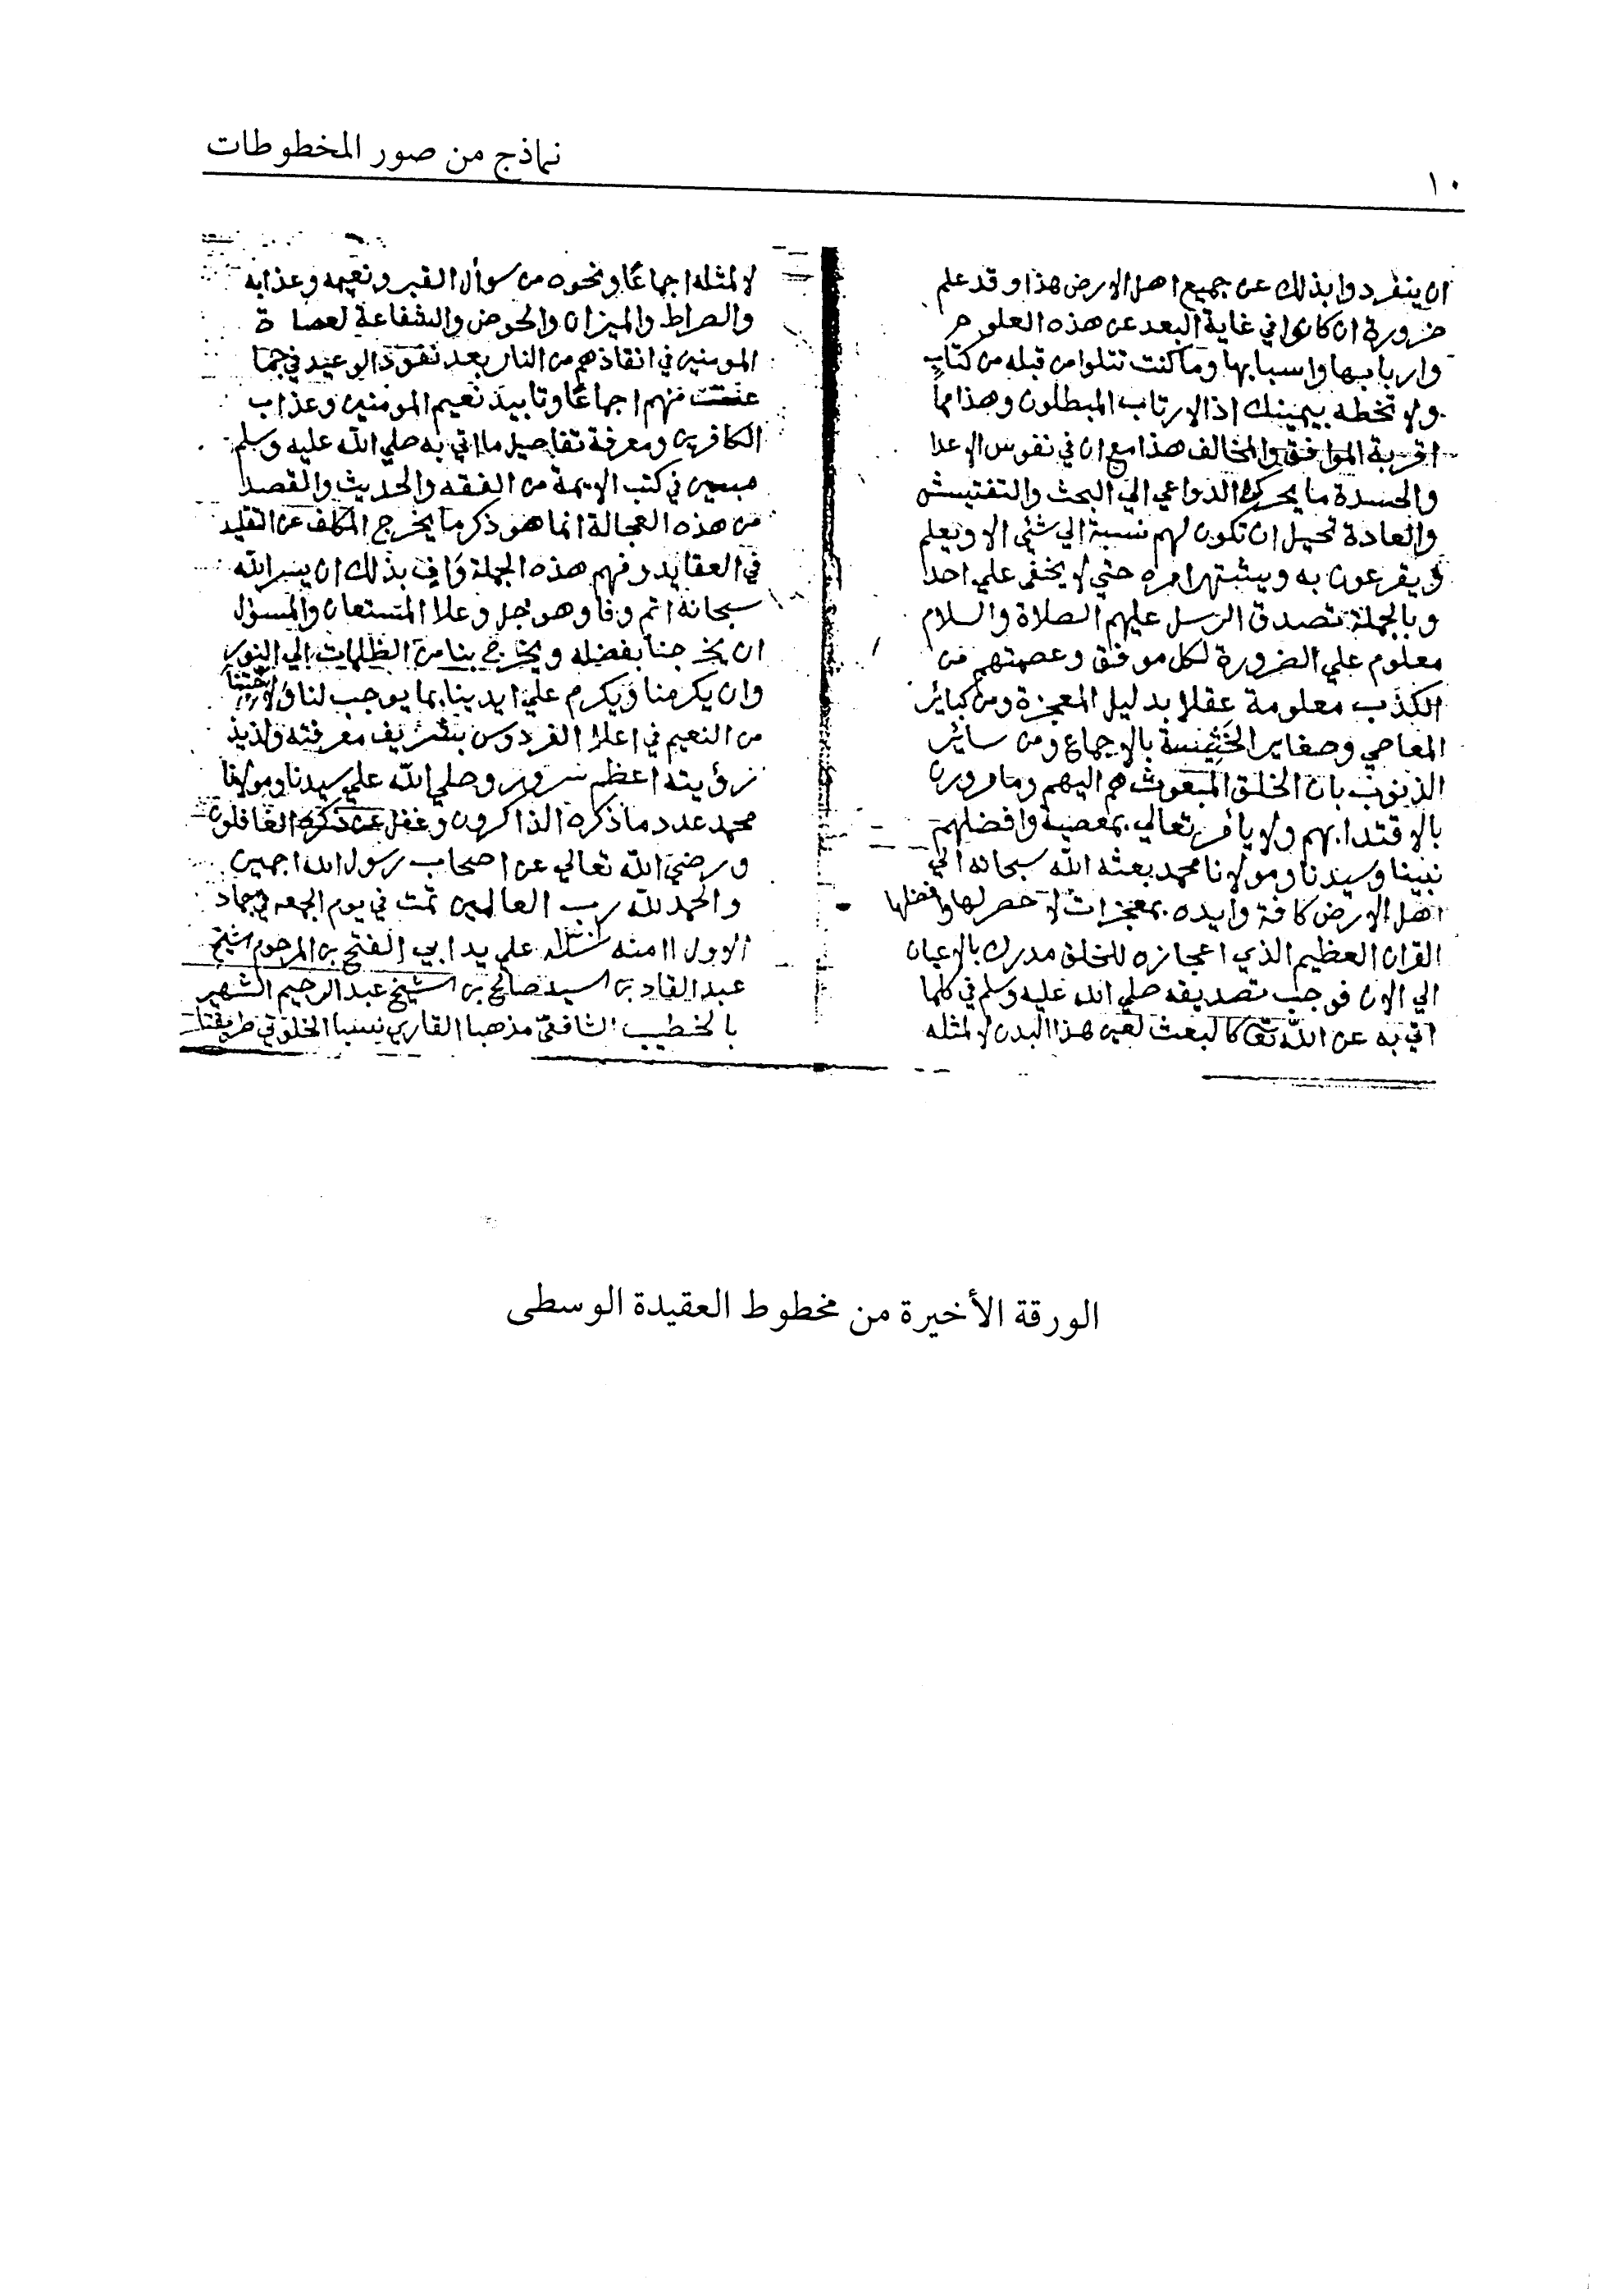 نماذج من صور المخطوطات
١٠
ان ينفردوا بذلك عن جميع اهل الارض هذا وقد علم
ضرورة ان كانوا في غاية البعد عن هذه العلوم
واربابها واسبابها وما كنت تتلوا من قبله من كتاب
ولا تخطه بيمينك اذا لارتاب المبطلون وهذا مما
اقر به الموافق والمخالف هذا مع ان في نفوس الاعدا
والحسدة ما يحرك الدواعي الي البحث والتفتيش
والعادة تحيل ان تكون لهم نسبة الي شئي الا ويعلم
ويقرعون به ويشتهر امره حتي لا يخفى علي احد
وبالجملة تصدق الرسل عليهم الصلاة والسلام
معلوم علي الضرورة لكل موفق وعصمتهم من
الكذب معلومة عقلا بدليل المعجزة ومن كبائر
المعاصي وصغاير الخسيسة بالاجماع ومن سائر
الذنوب بان الخلق المبعوث هم اليهم ومامورون
بالاقتدا بهم ولا يأمر تعالي بمعصية وافضلهم
نبينا وسيدنا ومولانا محمد بعثه الله سبحانه الي
اهل الارض كافة وايده بمعجزات لا حصر لها وافضلها
القران العظيم الذي اعجازه للخلق مدرك بالاعيان
الي الان فوجب تصديقه صلي الله عليه وسلم في كلما
اتي به عن الله تعالى كالبعث لعين هذا البدن لا لمثله
لا لمثله اجماعًا ونحوه من سوأل القبر ونعيمه وعذابه
والصراط والميزان والحوض والشفاعة لعصاة
المومنين في انقاذهم من النار بعد نفوذ الوعيد في جما
عت منهم اجماعًا وتابيد نعيم المومنين وعذاب
الكافرين ومعرفة تفاصيل ما اتي به صلي الله عليه وسلم
مبين في كتب الايمة من الفقه والحديث والقصد
من هذه العجالة انما هو ذكر ما يخرج المكلف عن التقليد
في العقايد وفهم هذه الجملة وَافٍ بذلك ان يسر الله
سبحانه اتم وفا وهو جل وعلا المستعان والمسؤل
ان يخرجنا بفضله ويخرج بنا من الظلمات الي النور
وان يكرمنا ويكرم علي ايدينا بما يوجب لنا ولاحبتنا
من النعيم في اعلا الفردوس بتشريف معرفته ولذيذ
رؤيته اعظم سرور وصلي الله علي سيدنا ومولانا
محمد عدد ما ذكره الذاكرون وغفل عن ذكره الغافلون
ورضي الله تعالي عن اصحاب رسول الله اجمين
والحمد لله رب العالمين تمت في يوم الجمعه في جماد
الاول ١١ منه سنة علي يد ابي الفتح بن المرحوم الشيخ
عبد القادر بن السيد صالح بن الشيخ عبد الرحيم الشهير
بالخطيب الشافعي مذهبا القاري نسبا الخلوتي طريقتا
الورقة الأخيرة من مخطوط العقيدة الوسطى